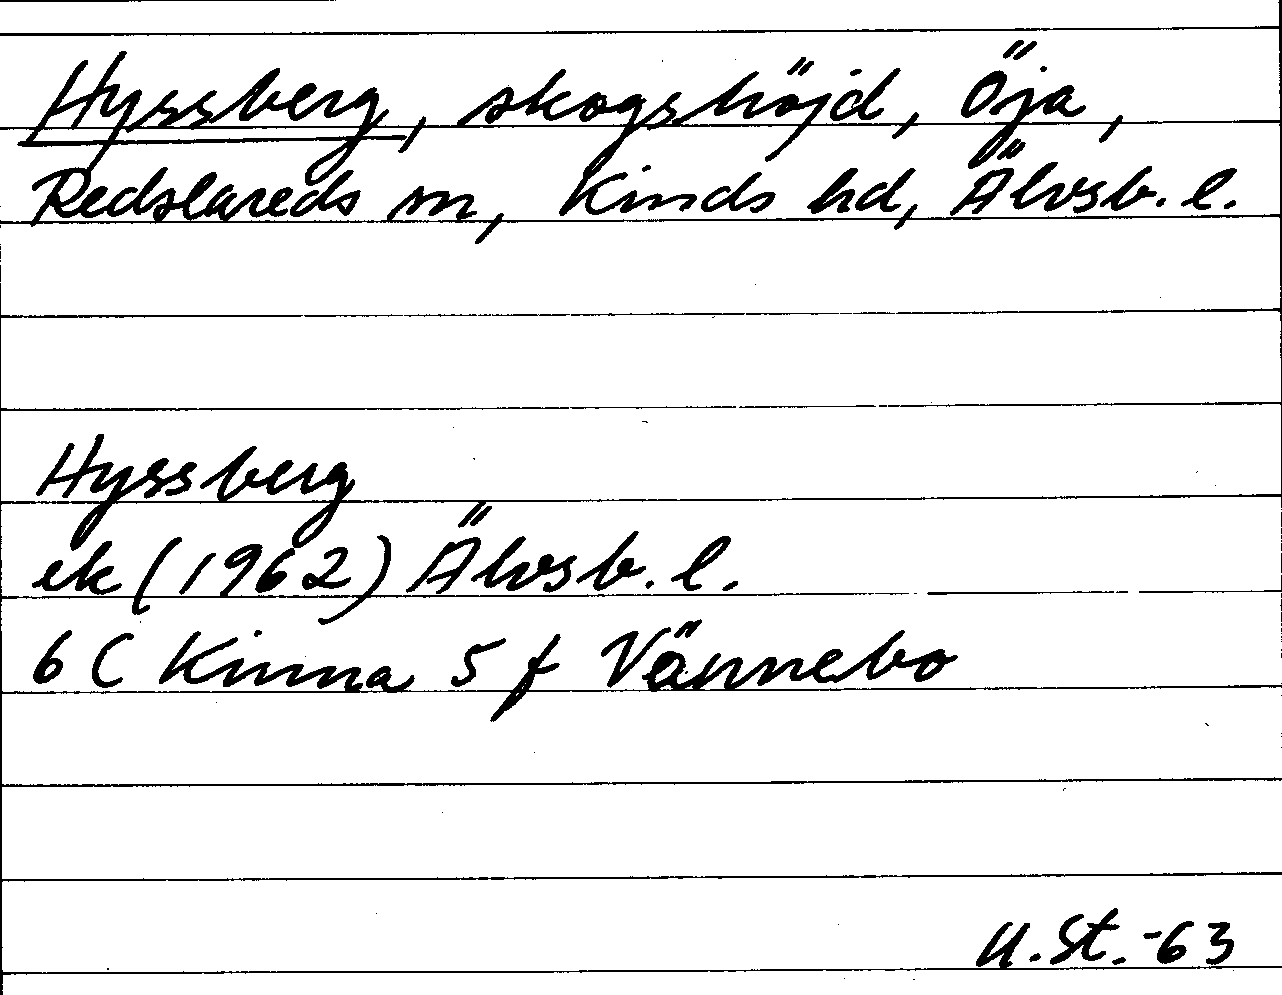 Hyssberg, skogshöjd, Öja,
Redslareds sn, Kinds hd, Älvsb. l.
Hyssberg
ek (1962) Älvsb. l.
6 C Kinna 5 f Vännebo
U. St. -63